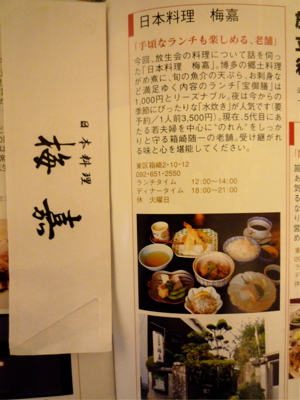 日本料理
梅嘉
日本料理 梅嘉
「手頃なランチも楽しめる、老舗」
今回、放生会の料理について話を伺っ
た「日本料理 梅嘉」。博多の郷土料理
がめ煮に、旬の魚介の天ぷら、お刺身な
ど満足ゆく内容のランチ「宝御膳」は
1,000円とリーズナブル。夜は今からの
季節にぴったりな「水炊き」が人気です(要
予約/1人前3,500円)。現在、5代目にあ
たる若夫婦を中心に“のれん”をしっか
りと守る箱崎随一の老舗。受け継がれ
る味と心を堪能してください。
東区箱崎2・10・12
092・651・2550
ランチタイム 12:00〜14:00
ディナータイム 18:00〜21:00
休 火曜日